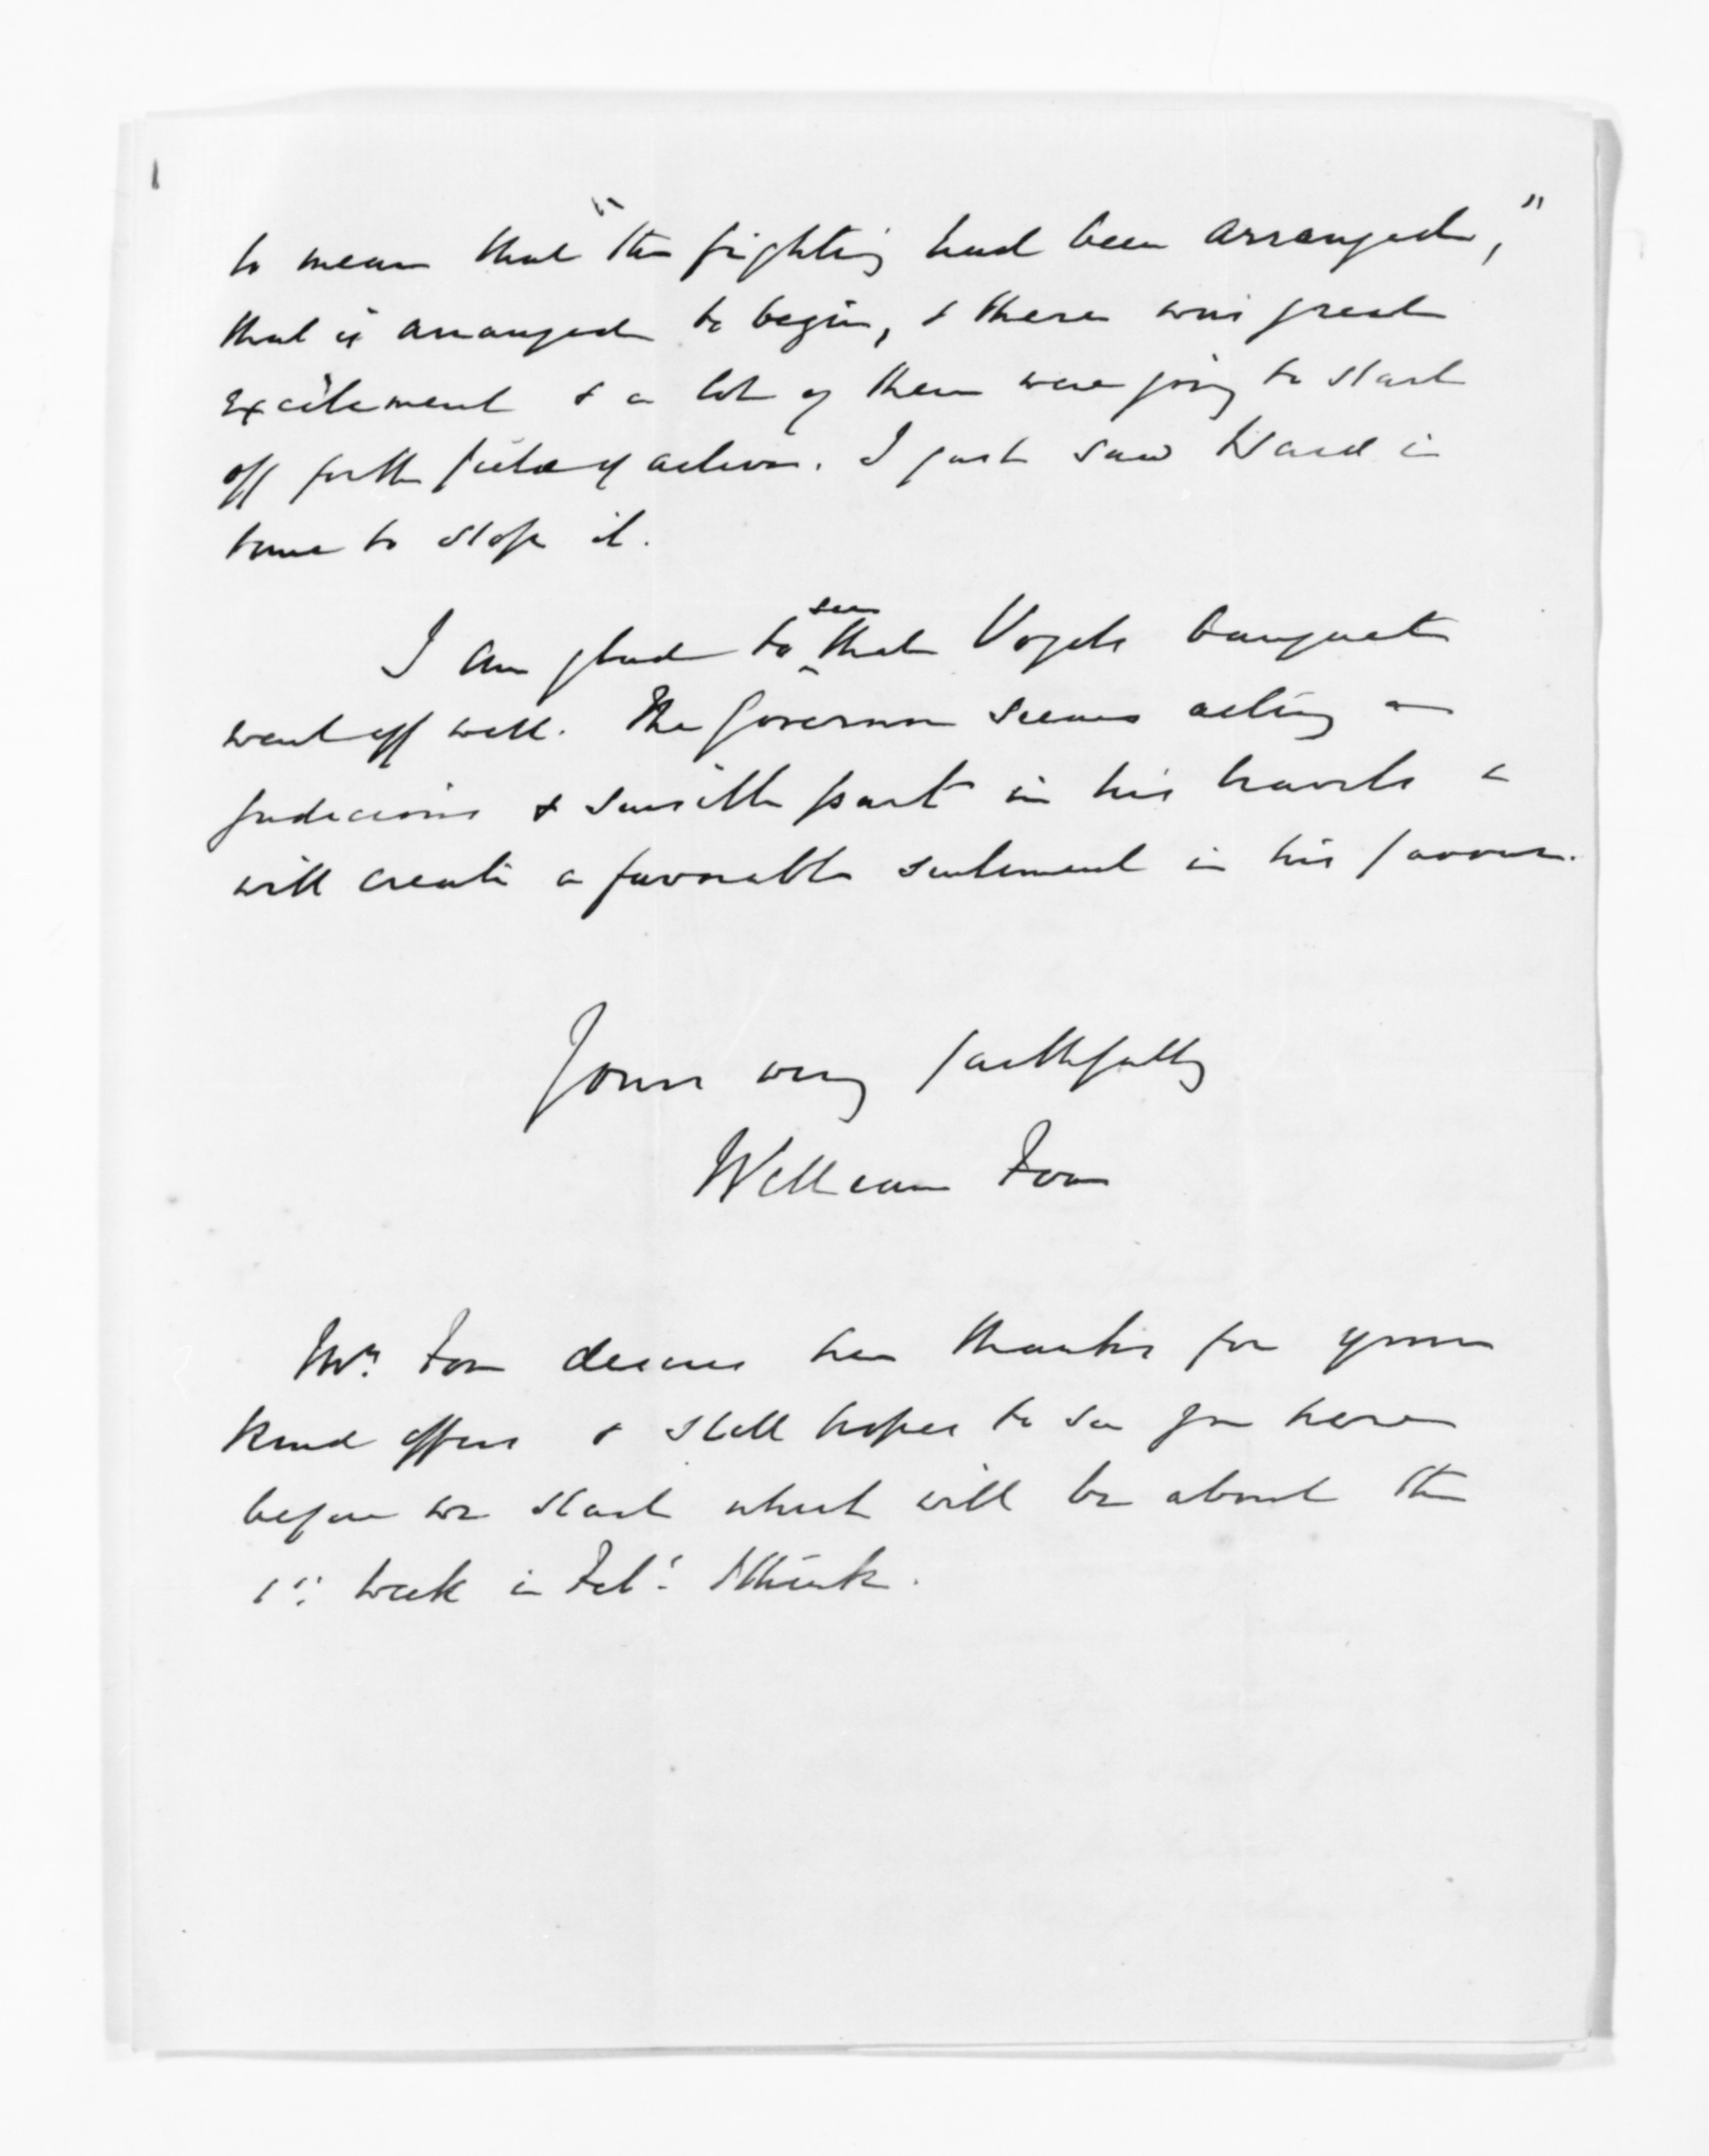 to mean that "the fighting had been arranged,"
that is arranged to begin, & there was great
excitement & a lot of them were going to start
off for the field of action. I just saw Ward in
time to stop it.
I am glad to see that Vogels banquet
went off well. The Governor seems acting a
judicious & sensible part in his travels &
will create a favorable sentiment in his favour.
Yours very faithfully
William Fox
Mrs. Fox desires her thanks for your
kind offers & still hopes to see you here
before we start which will be about the
1st week in Feby. I think.